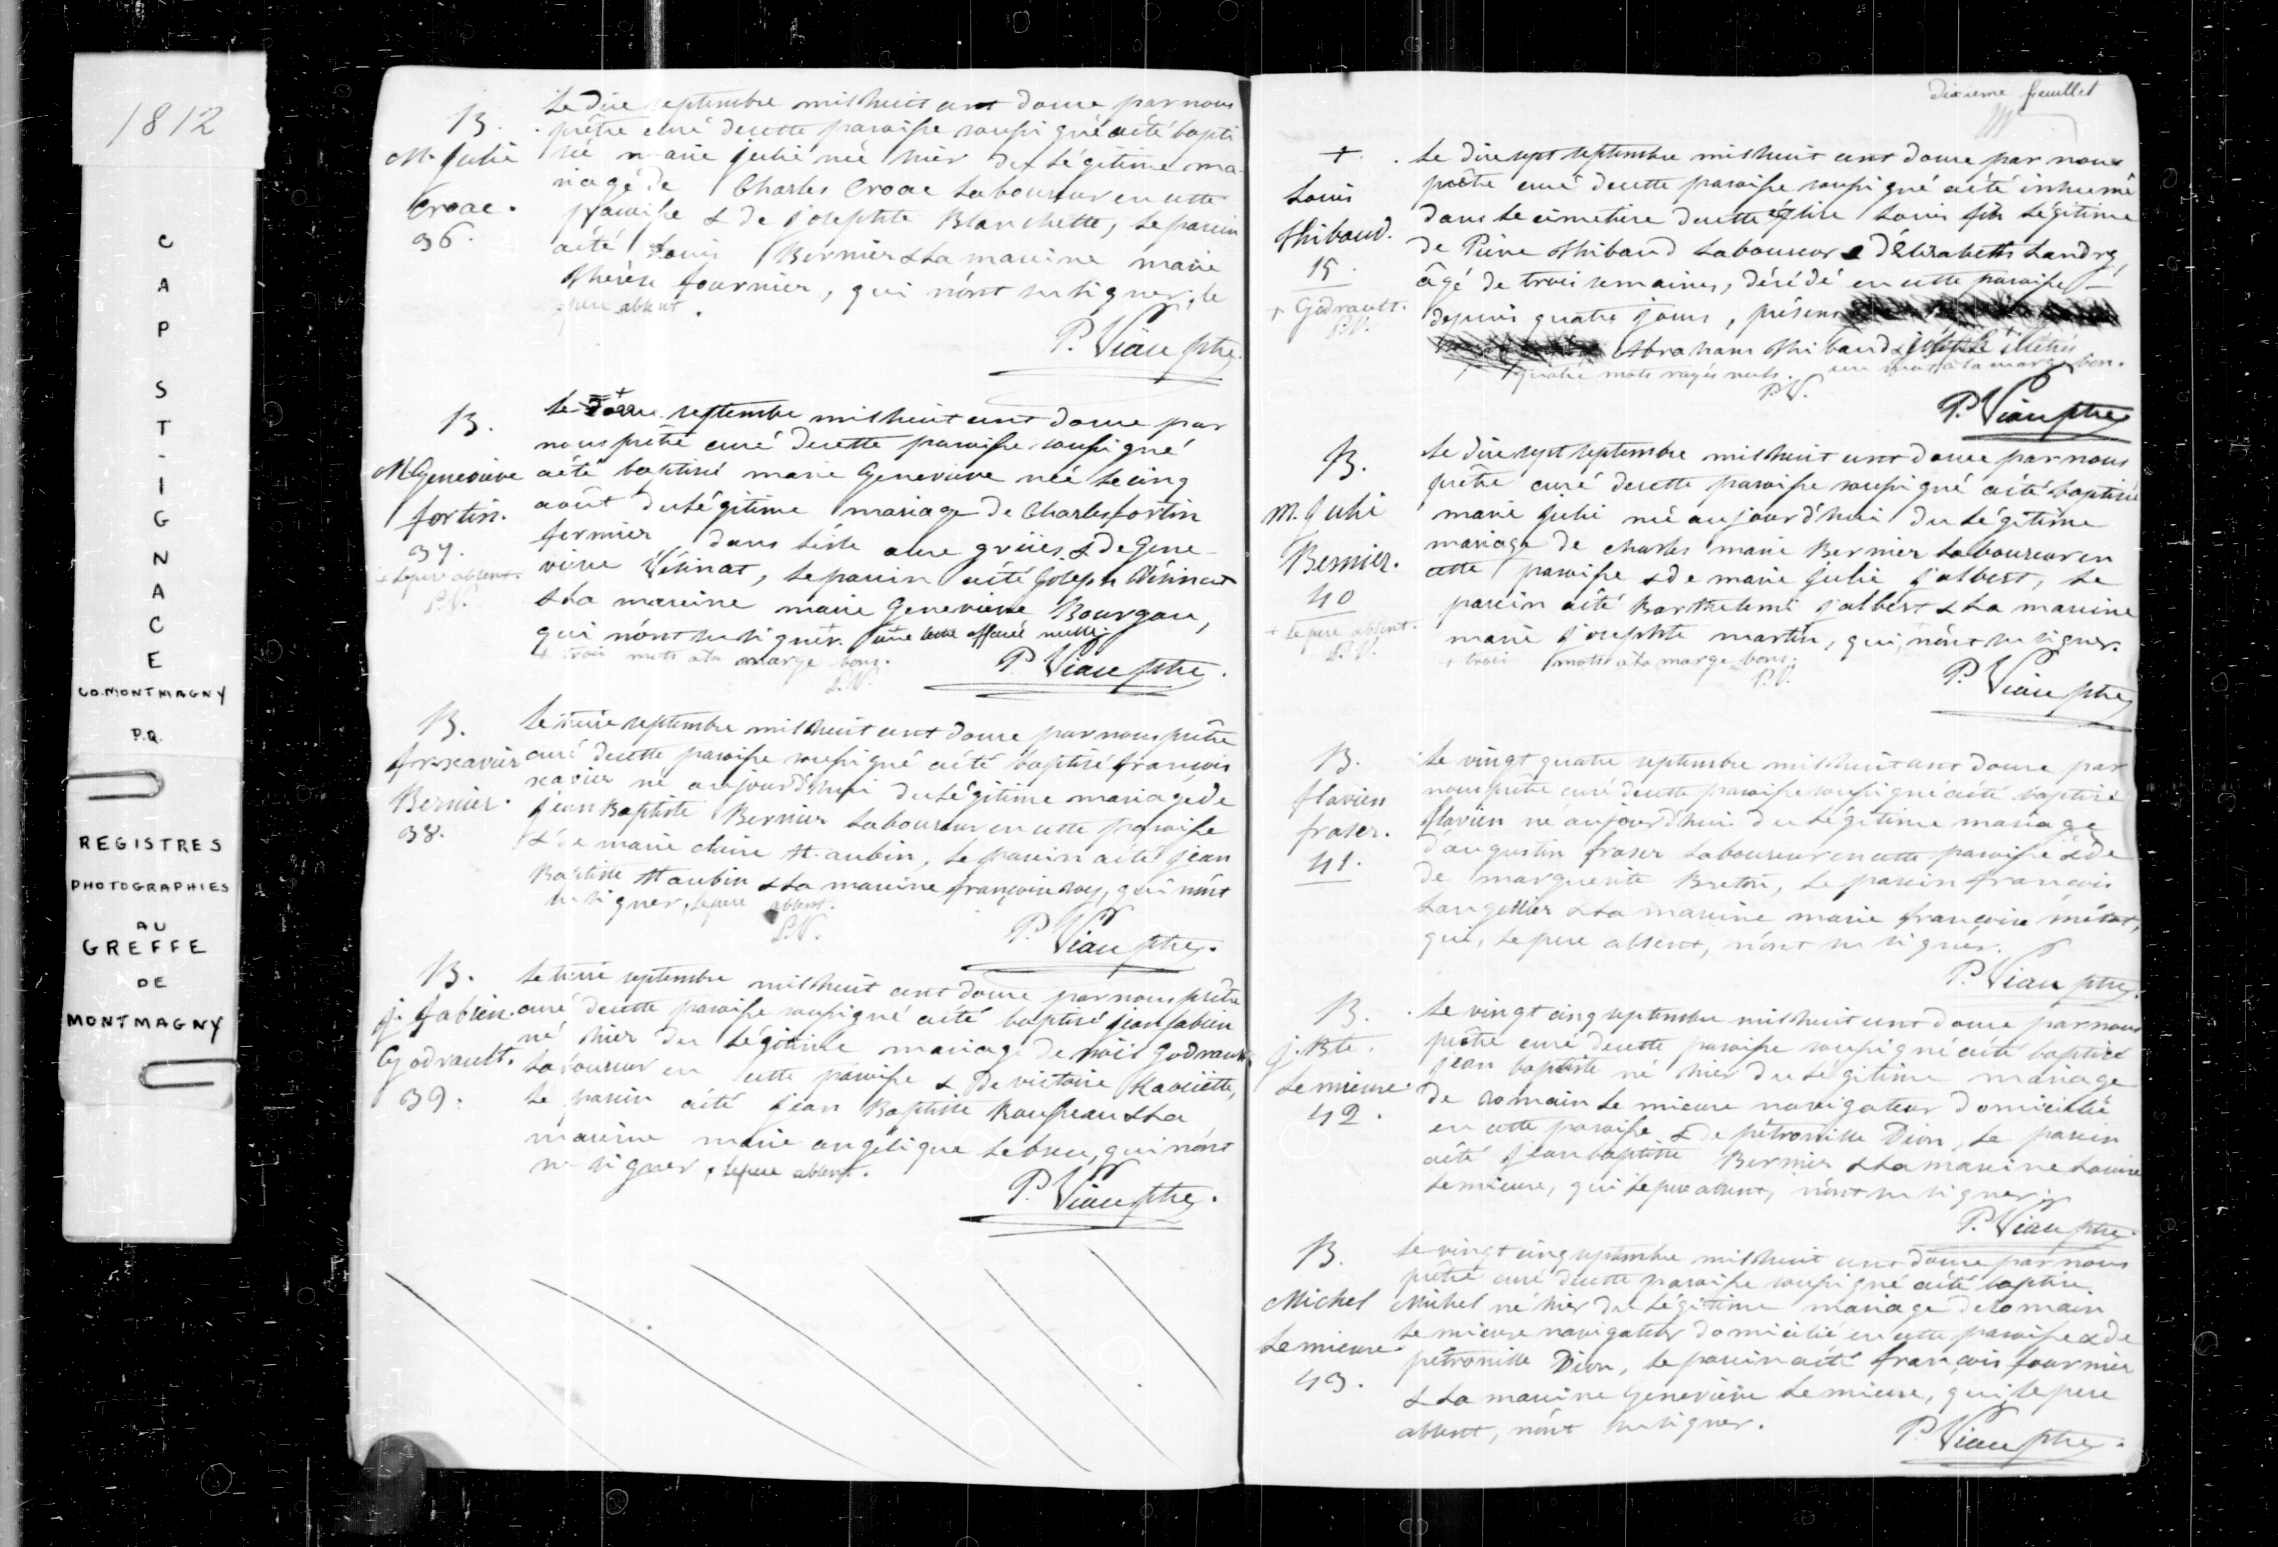 1812
CAP ST-IGNACE
CO. MONTMAGNY
P.Q.
REGISTRES
PHOTOGRAPHIES
AU
GREFFE
DE
MONTMAGNY
B.
M. Julie
Croac.
36.
Le dixe septembre mil huit cent douze par nous
prêtre curé de cette paroisse soussigné a été bapti
sée marie julie née hier du légitime ma
riage de Charles Croac laboureur en cette
paroisse & de josephte Blanchette, le parein
a été Louis Bernier & la mareine marie
thérèse fournier, qui n'ont su signer, le
pere absent.
P. Viau ptre
B.
M. Geneviève
fortin.
37.
+ le pere absent.
P.V.
Le septembre mil huit cent douze par
nous prêtre curé de cette paroisse soussigné
a été baptisée marie Geneviève née le cinq
août du légitime mariage de Charles fortin
fermier dans l'isle aux grües & de Gene-
viève Vésinat, le parein a été Joseph Vésinat
& la mareine marie Geneviève Bourgau,
qui n'ont su signer.
+ trois mots à la marge bons.
P.V.
P. Viau ptre
B.
frs xavier
Bernier.
38.
Le treize septembre mil huit cent douze par nous prêtre
curé de cette paroisse soussigné a été baptisé françois
xavier né aujourd'hui du légitime mariage de
jean Baptiste Bernier laboureur en cette paroisse
& de marie claire St. aubin, le parein a été jean
Baptiste St aubin & la mareine françoise roy, qui n'ont
su signer, le pere absent.
P.V.
P. Viau ptre.
B.
j. fabien
Godrault.
39.
Le treize septembre mil huit cent douze par nous prêtre
curé de cette paroisse soussigné a été baptisé jean fabien
né hier du légitime mariage de noël Godrault
laboureur en cette paroisse & de victoire
le parein a été jean Baptiste Rousseau & la
mareine marie angélique Lebreu, qui n'ont
su signer, le pere absent.
P. Viau ptre.
dixieme feuillet
+.
Louis
thibaud.
15.
+ Godrault.
P.V.
Le dixe sept septembre mil huit cent douze par nous
prêtre curé de cette paroisse soussigné a été inhumé
dans le cimetiere de cette église Louis fils légitime
de Pierre thibaud laboureur & d'Elizabeth Landry,
âgé de trois semaines, décédé en cette paroisse
depuis quatre jours, présens
Abraham thibaud &
quatre mots rayés nuls. un mot à la marge bon.
P.V.
P. Viau ptre
B.
M. Julie
Bernier.
40
+ le pere absent.
P.V.
Le dixe sept septembre mil huit cent douze par nous
prêtre curé de cette paroisse soussigné a été baptisée
marie julie née aujourd'hui du légitime
mariage de charles marie Bernier laboureur en
cette paroisse & de marie julie jalbert, le
parein a été Barthelemi jalbert & la mareine
marie josephte martin, qui, n'ont su signer.
+ trois mots à la marge bons.
P.V.
P. Viau ptre
B.
flavien
fraser.
41.
Le vingt quatre septembre mil huit cent douze par
nous prêtre curé de cette paroisse soussigné a été baptisé
flavien né aujourd'hui du légitime mariage
d'augustin fraser laboureur en cette paroisse & de
de marguerite Breton, le parein françois
Langellier & la mareine marie françoise métot,
qui, le pere absent, n'ont su signer.
P. Viau ptre.
B.
j. Bte.
Lemieux
42.
Le vingt cinq septembre mil huit cent douze par nous
prêtre curé de cette paroisse soussigné a été baptisé
jean baptiste né hier du légitime mariage
de romain Le mieux navigateur domicilié
en cette paroisse & de pétronille Dion, le parein
a été jean baptiste Bernier & la mareine Louise
Lemieux, qui le pere absent, n'ont su signer.
P. Viau ptre
B.
Michel
Lemieux
43.
Le vingt cinq septembre mil huit cent douze par nous
prêtre curé de cette paroisse soussigné a été baptisé
Michel né hier du légitime mariage de romain
Le mieux navigateur domicilié en cette paroisse & de
pétronille Dion, le parein a été françois fournier
& la mareine Geneviève Le mieux, qui, le pere
absent, n'ont su signer.
P. Viau ptre.